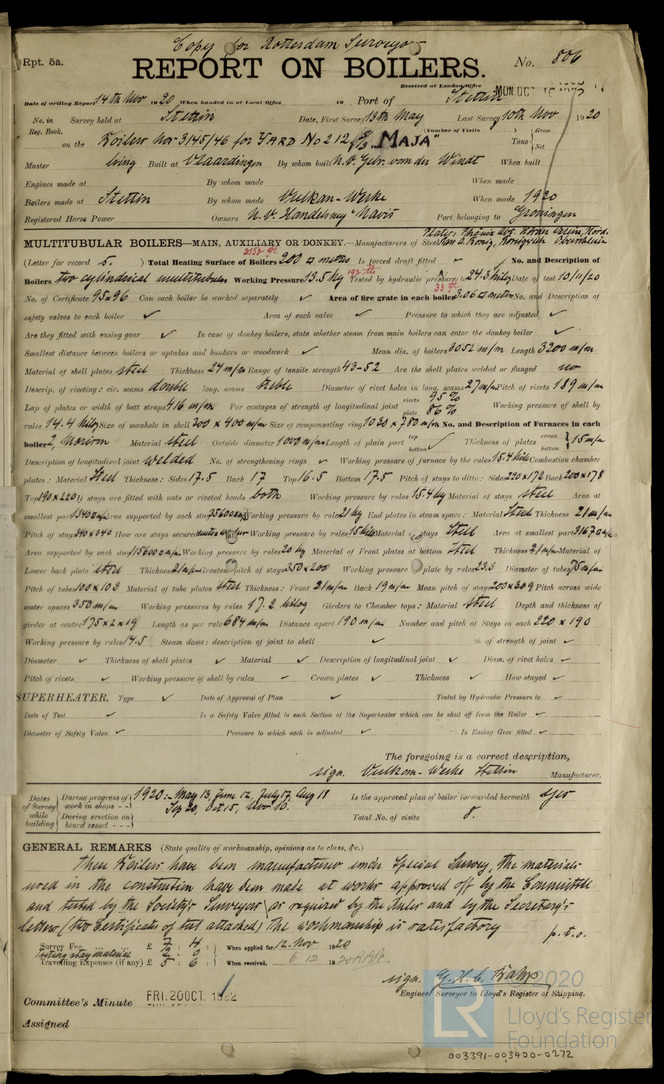 Copy for Rotterdam Surveyors
Rpt. 5a.
REPORT ON BOILERS.
No. 806
Received at London Office MON. OCT. 16 1922
Date of writing Report 14th Nov 1920 When handed in at Local Office 19 Port of Stettin
No. in Survey held at Stettin Date, First Survey 13th May Last Survey 10th Nov 1920
Reg. Book. (Number of Visits
on the Boilers Nos 3145/46 for YARD No 212 S/S "MAJA" Tons Gross Net
Master being Built at Vlaardingen By whom built N.V. Gebr. van der Windt When built
Engines made at By whom made When made
Boilers made at Stettin By whom made Vulkan-Werke When made 1920
Registered Horse Power Owners N.V. Handelsmy "Navis" Port belonging to Groningen
MULTITUBULAR BOILERS—MAIN, AUXILIARY OR DONKEY.—Manufacturers of Steel
2152 ft
(Letter for record S.) Total Heating Surface of Boilers 200 □ meters Is forced draft fitted ✓ No. and Description of
Boilers two cylindrical multitubular Working Pressure 13.5 kg 192 lbs Tested by hydraulic pressure to 24.3 kilos Date of test 10/11/20
33 ft
No. of Certificate 95 & 96 Can each boiler be worked separately ✓ Area of fire grate in each boiler 3.06 □ meters No. and Description of
safety valves to each boiler ✓ Area of each valve ✓ Pressure to which they are adjusted ✓
Are they fitted with easing gear ✓ In case of donkey boilers, state whether steam from main boilers can enter the donkey boiler ✓
Smallest distance between boilers or uptakes and bunkers or woodwork ✓ Mean dia. of boilers 3052 m/m Length 3200 m/m
Material of shell plates steel Thickness 24 m/m Range of tensile strength 43-52 Are the shell plates welded or flanged no
Descrip. of riveting: cir. seams double long. seams treble Diameter of rivet holes in long. seams 27 m/m Pitch of rivets 189 m/m
Lap of plates or width of butt straps 416 m/m Per centages of strength of longitudinal joint rivets 95 % plate 86 % Working pressure of shell by
rules 14.4 kilos Size of manhole in shell 300 x 400 m/m Size of compensating ring 1030 x 780 m/m No. and Description of Furnaces in each
boiler 2, Morison Material steel Outside diameter 1000 m/m Length of plain part top bottom ✓ Thickness of plates crown bottom } 15 m/m
Description of longitudinal joint welded No. of strengthening rings ✓ Working pressure of furnace by the rules 15.4 kilos Combustion chamber
plates: Material steel Thickness: Sides 17.5 Back 17 Top 16.5 Bottom 17.5 Pitch of stays to ditto: Sides 220 x 172 Back 200 x 178
Top 190 x 220 If stays are fitted with nuts or riveted heads both Working pressure by rules 15.4 kg Material of stays steel Area at
smallest part Area supported by each stay Working pressure by rules 21 kg End plates in steam space: Material steel Thickness 21 m/m
Pitch of stays 340 x 340 How are stays secured Working pressure by rules 15 kilos Material of stays steel Area at smallest part
Area supported by each stay Working pressure by rules 20 kg Material of Front plates at bottom steel Thickness 21 m/m Material of
Lower back plate steel Thickness 21 m/m Greatest pitch of stays 350 x 200 Working pressure of plate by rules 23.3 Diameter of tubes 75 m/m
Pitch of tubes 100 x 103 Material of tube plates steel Thickness: Front 21 m/m Back 19 m/m Mean pitch of stays 200 x 309 Pitch across wide
water spaces 350 m/m Working pressures by rules 17.2 kilog Girders to Chamber tops: Material steel Depth and thickness of
girder at centre 175 x 2 x 19 Length as per rule 684 m/m Distance apart 190 m/m Number and pitch of Stays in each 220 x 190
Working pressure by rules 14.5 Steam dome: description of joint to shell ✓ % of strength of joint ✓
Diameter ✓ Thickness of shell plates ✓ Material ✓ Description of longitudinal joint ✓ Diam. of rivet holes ✓
Pitch of rivets ✓ Working pressure of shell by rules ✓ Crown plates ✓ Thickness ✓ How stayed ✓
SUPERHEATER. Type ✓ Date of Approval of Plan ✓ Tested by Hydraulic Pressure to ✓
Date of Test ✓ Is a Safety Valve fitted to each Section of the Superheater which can be shut off from the Boiler ✓
Diameter of Safety Valve ✓ Pressure to which each is adjusted ✓ Is Easing Gear fitted ✓
The foregoing is a correct description,
sign. Vulkan-Werke Stettin Manufacturer.
Dates of Survey while building During progress of work in shops - - 1920:- May 13, June 12, July 17, Aug 18
Sep 20, Oct 15, Nov 10. Is the approved plan of boiler forwarded herewith yes
During erection on board vessel - - - Total No. of visits 8.
GENERAL REMARKS (State quality of workmanship, opinions as to class, &c.)
These Boilers have been manufactured under Special Survey, the materials
used in the construction have been made at works approved off by the Committee
and tested by the Society's Surveyors as required by the Rules and by the Secretary's
letters (two Certificates of test attached) The workmanship is satisfactory
p.t.o.
Survey Fee £ 7 : 4 : When applied for, 12. Nov 1920
Testing stay material
Travelling Expenses (if any) £ 5 : 6 : When received, 6 12 1920
sign. G.H.C. Kahrs
Engineer Surveyor to Lloyd's Register of Shipping.
Committee's Minute FRI. 20 OCT. 1922
Assigned
© 2020
LR
Lloyd's Register
Foundation
003391-003400-0272